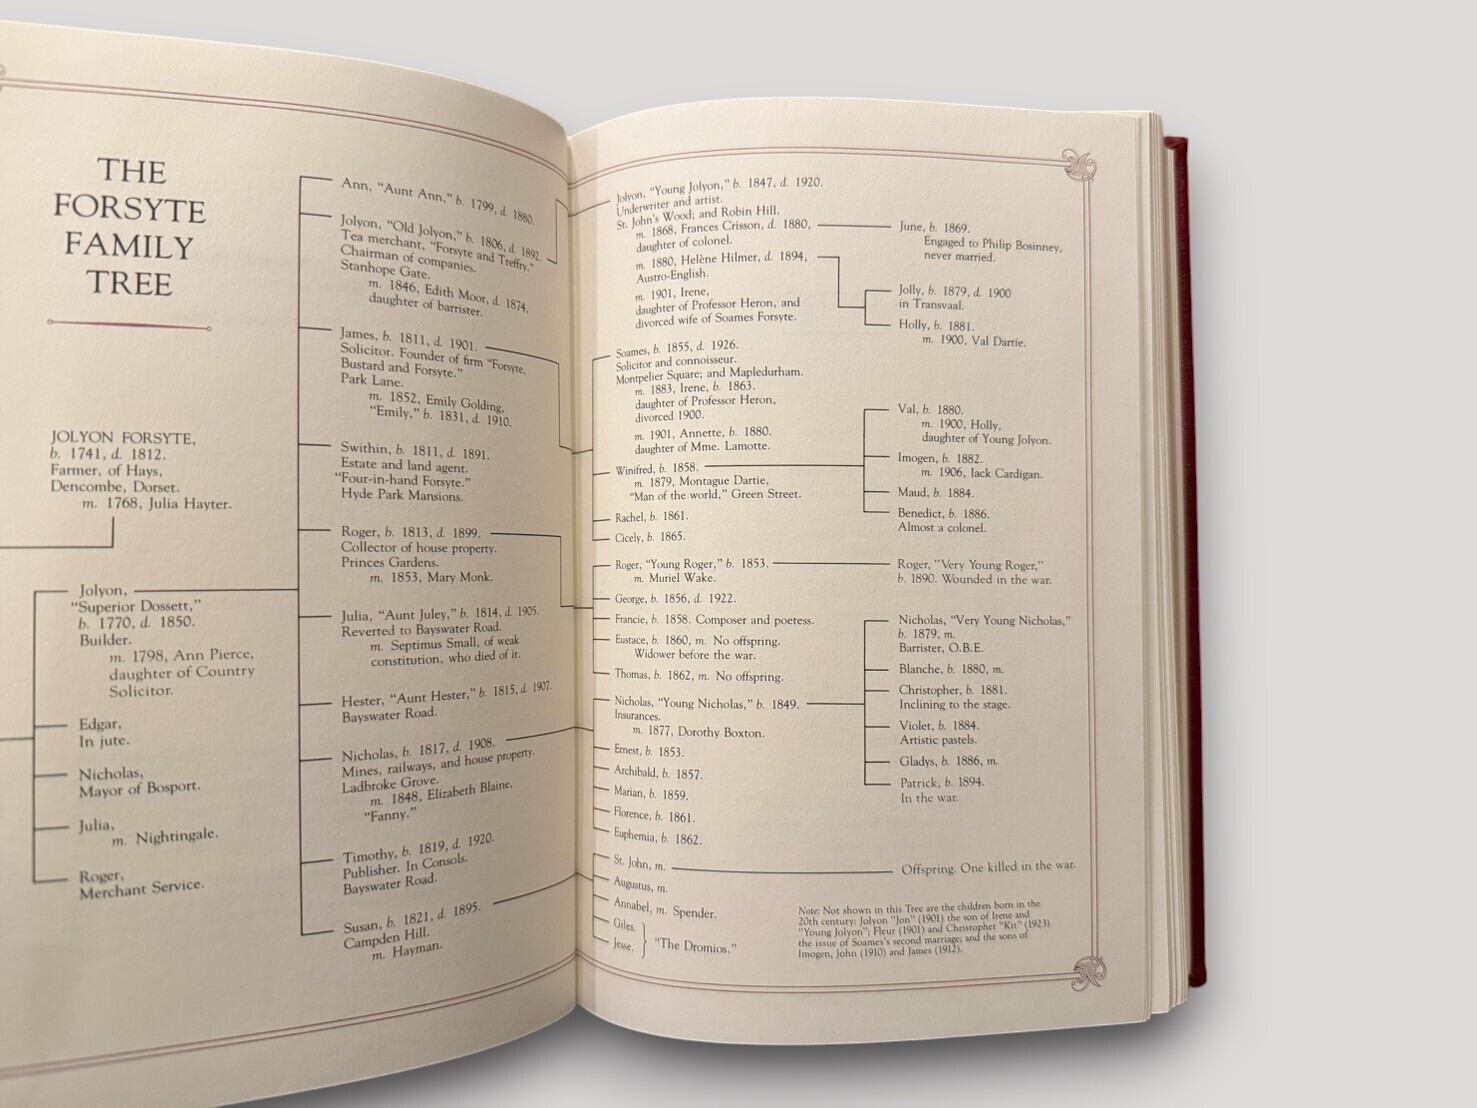 THE
FORSYTE
FAMILY
TREE
JOLYON FORSYTE,
b. 1741, d. 1812.
Farmer, of Hays,
Dencombe, Dorset.
m. 1768, Julia Hayter.
Jolyon,
"Superior Dossett,"
b. 1770, d. 1850.
Builder.
m. 1798, Ann Pierce,
daughter of Country
Solicitor.
Edgar,
In jute.
Nicholas,
Mayor of Bosport.
Julia,
m. Nightingale.
Roger,
Merchant Service.
Ann, "Aunt Ann," b. 1799, d. 1880.
Jolyon, "Old Jolyon," b. 1806, d. 1892.
Tea merchant, "Forsyte and Treffry."
Chairman of companies.
Stanhope Gate.
m. 1846, Edith Moor, d. 1874,
daughter of barrister.
James, b. 1811, d. 1901.
Solicitor. Founder of firm "Forsyte,
Bustard and Forsyte."
Park Lane.
m. 1852, Emily Golding,
"Emily," b. 1831, d. 1910.
Swithin, b. 1811, d. 1891.
Estate and land agent.
"Four-in-hand Forsyte."
Hyde Park Mansions.
Roger, b. 1813, d. 1899.
Collector of house property.
Princes Gardens.
m. 1853, Mary Monk.
Julia, "Aunt Juley," b. 1814, d. 1905.
Reverted to Bayswater Road.
m. Septimus Small, of weak
constitution, who died of it.
Hester, "Aunt Hester," b. 1815, d. 1907.
Bayswater Road.
Nicholas, b. 1817, d. 1908.
Mines, railways, and house property.
Ladbroke Grove.
m. 1848, Elizabeth Blaine,
"Fanny."
Timothy, b. 1819, d. 1920.
Publisher. In Consols.
Bayswater Road.
Susan, b. 1821, d. 1895.
Campden Hill.
m. Hayman.
Jolyon, "Young Jolyon," b. 1847, d. 1920.
Underwriter and artist.
St. John's Wood; and Robin Hill.
m. 1868, Frances Crisson, d. 1880,
daughter of colonel.
m. 1880, Helène Hilmer, d. 1894,
Austro-English.
m. 1901, Irene,
daughter of Professor Heron, and
divorced wife of Soames Forsyte.
Soames, b. 1855, d. 1926.
Solicitor and connoisseur.
Montpelier Square; and Mapledurham.
m. 1883, Irene, b. 1863.
daughter of Professor Heron,
divorced 1900.
m. 1901, Annette, b. 1880.
daughter of Mme. Lamotte.
Winifred, b. 1858.
m. 1879, Montague Dartie,
"Man of the world," Green Street.
Rachel, b. 1861.
Cicely, b. 1865.
Roger, "Young Roger," b. 1853.
m. Muriel Wake.
George, b. 1856, d. 1922.
Francie, b. 1858. Composer and poetess.
Eustace, b. 1860, m. No offspring.
Widower before the war.
Thomas, b. 1862, m. No offspring.
Nicholas, "Young Nicholas," b. 1849.
Insurances.
m. 1877, Dorothy Boxton.
Ernest, b. 1853.
Archibald, b. 1857.
Marian, b. 1859.
Florence, b. 1861.
Euphemia, b. 1862.
St. John, m.
Augustus, m.
Annabel, m. Spender.
Giles.
Jesse. "The Dromios."
June, b. 1869.
Engaged to Philip Bosinney,
never married.
Jolly, b. 1879, d. 1900
in Transvaal.
Holly, b. 1881.
m. 1900, Val Dartie.
Val, b. 1880.
m. 1900, Holly,
daughter of Young Jolyon.
Imogen, b. 1882.
m. 1906, Jack Cardigan.
Maud, b. 1884.
Benedict, b. 1886.
Almost a colonel.
Roger, "Very Young Roger,"
b. 1890. Wounded in the war.
Nicholas, "Very Young Nicholas,"
b. 1879, m.
Barrister, O.B.E.
Blanche, b. 1880, m.
Christopher, b. 1881.
Inclining to the stage.
Violet, b. 1884.
Artistic pastels.
Gladys, b. 1886, m.
Patrick, b. 1894.
In the war.
Offspring. One killed in the war.
Note: Not shown in this Tree are the children born in the
20th century: Jolyon "Jon" (1901) the son of Irene and
"Young Jolyon"; Fleur (1901) and Christopher "Kit" (1923)
the issue of Soames's second marriage; and the sons of
Imogen, John (1910) and James (1912).